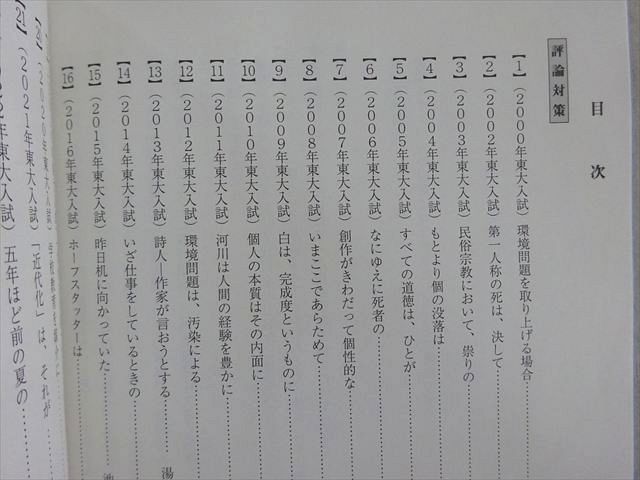 目次
評論対策
【1】(2000年東大入試) 環境問題を取り上げる場合
【2】(2002年東大入試) 第一人称の死は、決して
【3】(2003年東大入試) 民俗宗教において、祟りの
【4】(2004年東大入試) もとより個の没落は
【5】(2005年東大入試) すべての道徳は、ひとが
【6】(2006年東大入試) なにゆえに死者の
【7】(2007年東大入試) 創作がきわだって個性的な
【8】(2008年東大入試) いまここであらためて
【9】(2009年東大入試) 白は、完成度というものに
【10】(2010年東大入試) 個人の本質はその内面に
【11】(2011年東大入試) 河川は人間の経験を豊かに
【12】(2012年東大入試) 環境問題は、汚染による
【13】(2013年東大入試) 詩人―作家が言おうとする 湯
【14】(2014年東大入試) いざ仕事をしているときの
【15】(2015年東大入試) 昨日机に向かっていた 池
【16】(2016年東大入試) ホーフスタッターは
【20】(2020年東大入試)
【21】(2021年東大入試) 「近代化」は、それが
年東大入試) 五年ほど前の夏の